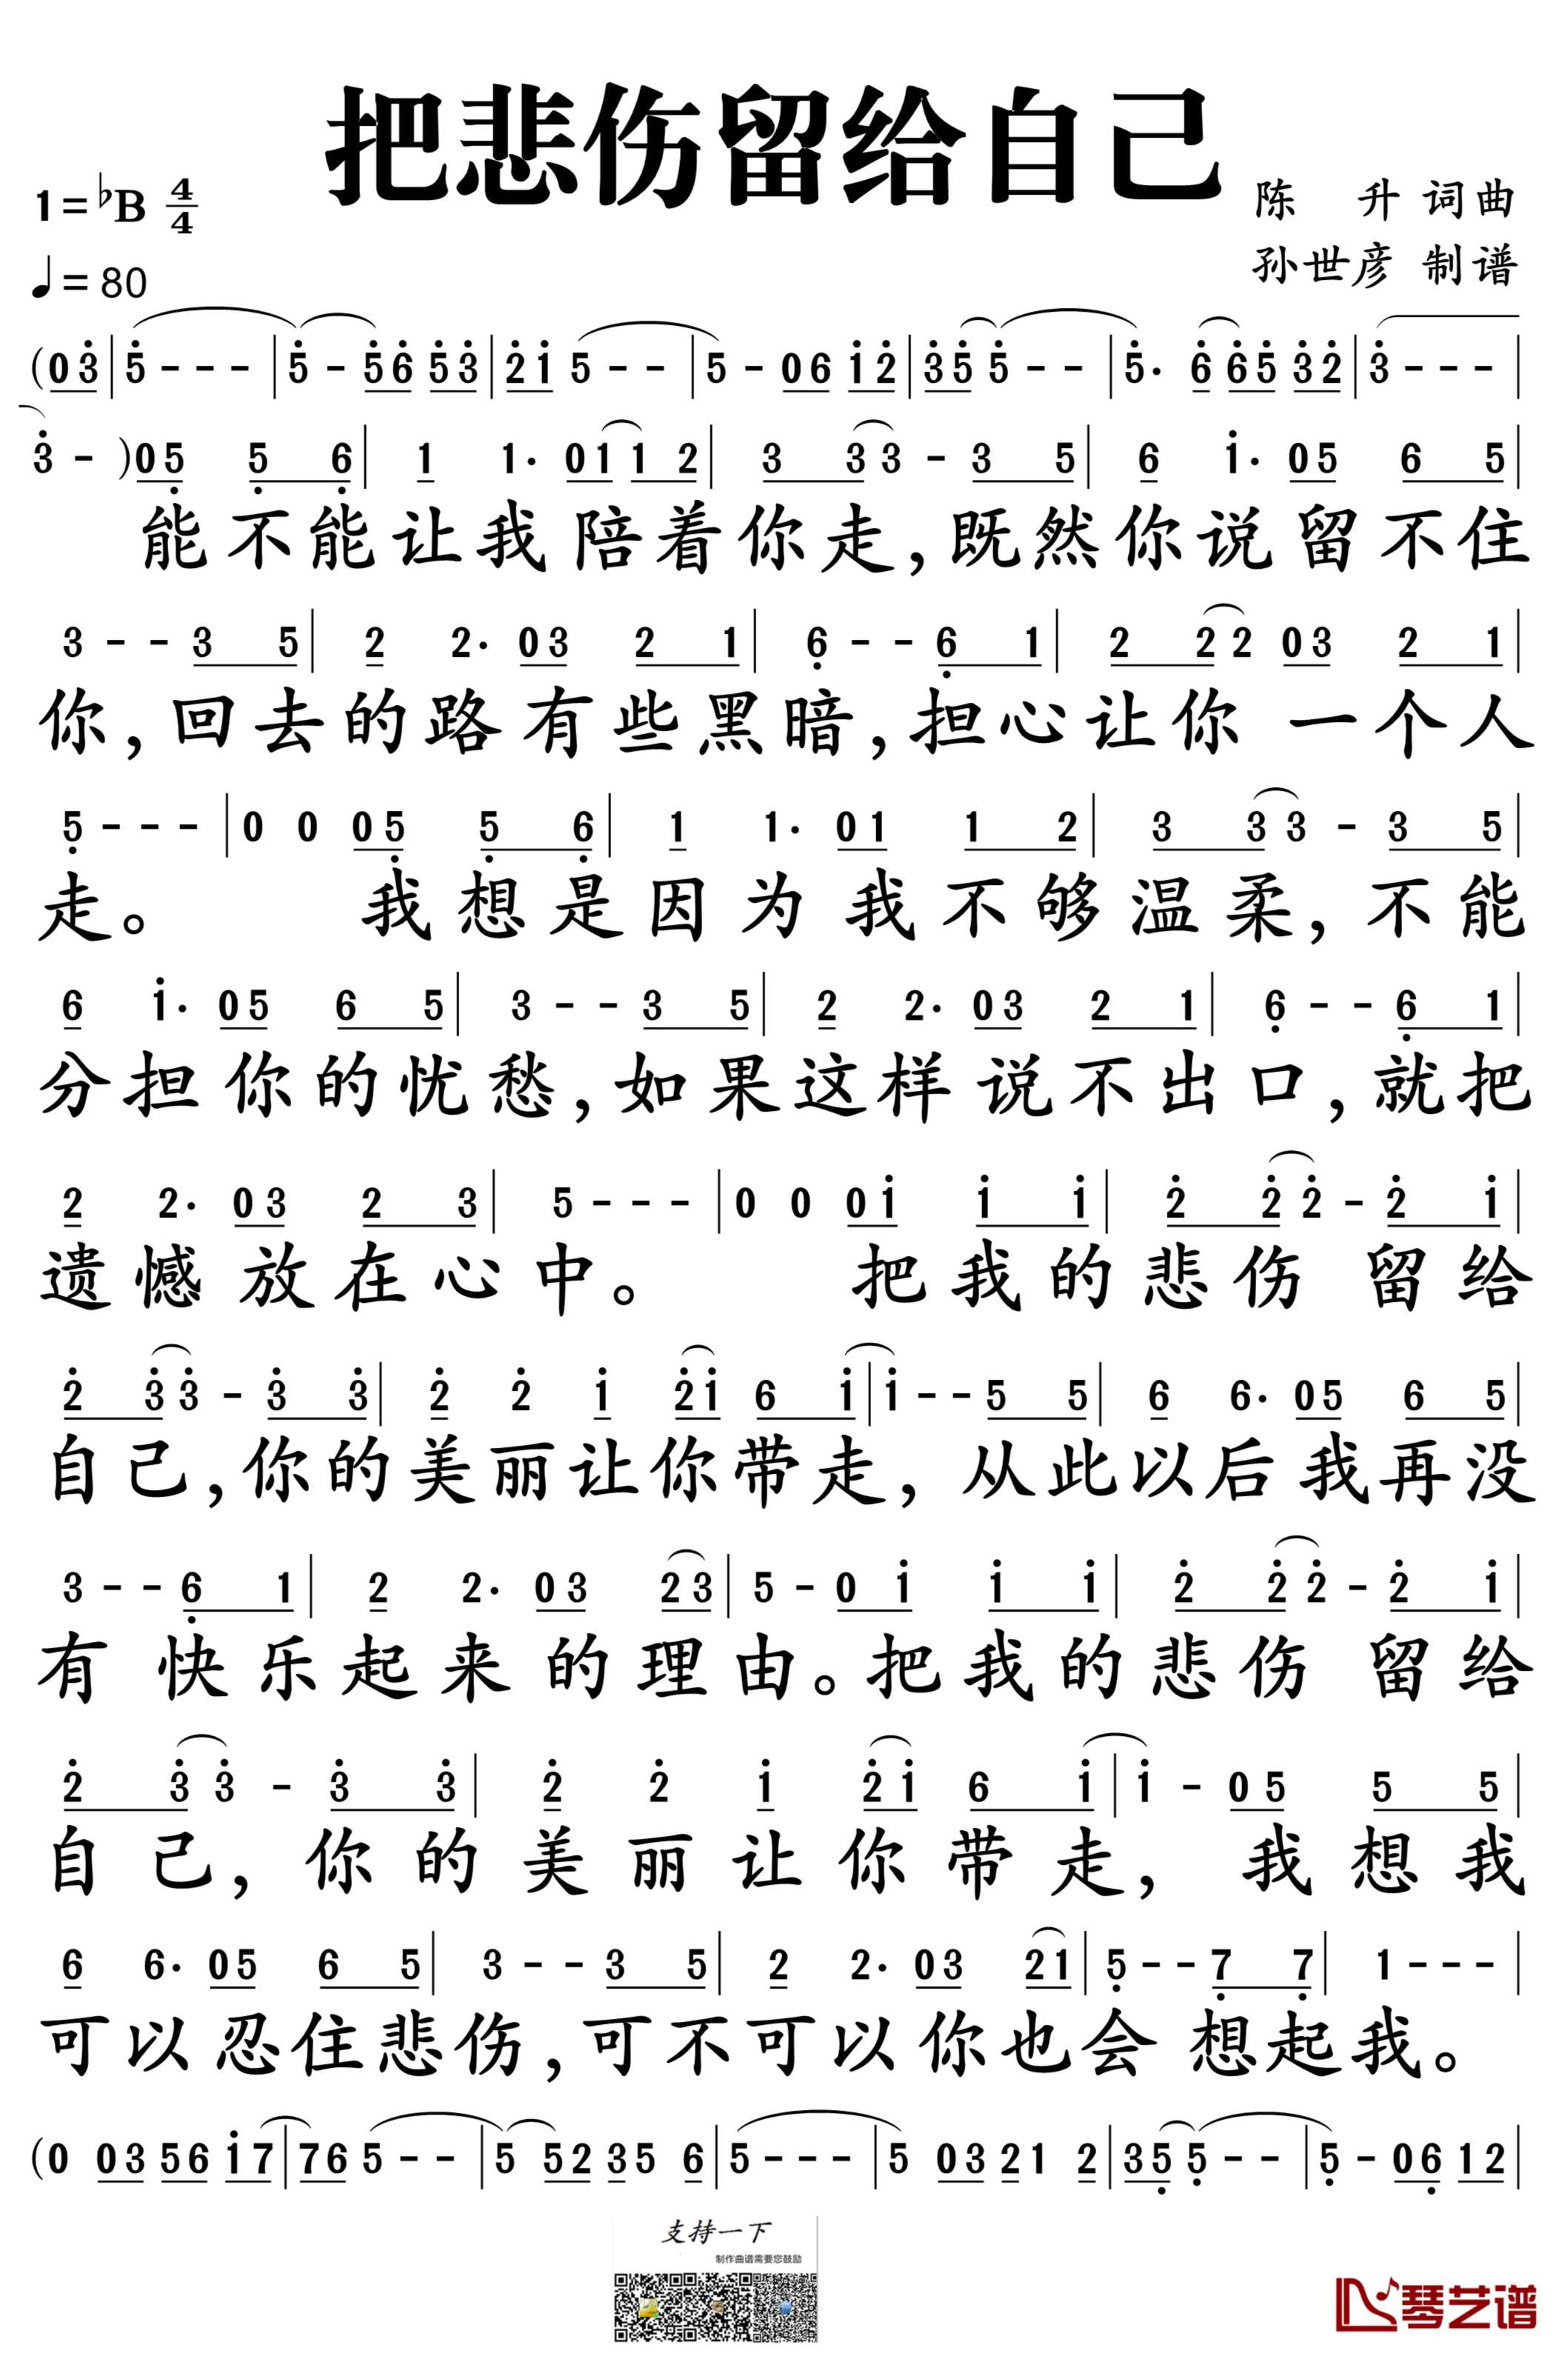 把悲伤留给自己
1=♭B 4/4
陈 升 词曲
♩=80
孙世彦 制谱
(03̇|5̇---|5̇-5̇6̇ 5̇3̇|2̇1̇ 5--|5-06 1̇2̇|3̇5̇5̇--|5̇. 6̇6̇5̇ 3̇2̇|3̇---|
3̇- )05̣ 5̣ 6̣|1 1. 011 2|3 33-3 5|6 1̇. 05 6 5|
能不能让我陪着你走,既然你说留不住
3--3 5|2 2. 03 2 1|6̣--6̣ 1|2 22 03 2 1|
你,回去的路有些黑暗,担心让你 一个人
5̣---|0 0 05̣ 5̣ 6̣|1 1. 01 1 2|3 33-3 5|
走。 我想是因为我不够温柔,不能
6 1̇. 05 6 5|3--3 5|2 2. 03 2 1|6̣--6̣ 1|
分担你的忧愁,如果这样说不出口,就把
2 2. 03 2 3|5---|0 0 01̇ 1̇ 1̇|2̇ 2̇2̇-2̇ 1̇|
遗憾放在心中。 把我的悲伤 留给
2̇ 3̇3̇-3̇ 3̇|2̇ 2̇ 1̇ 2̇1̇ 6 1̇|1̇--5 5|6 6. 05 6 5|
自己,你的美丽让你带走,从此以后我再没
3--6̣ 1|2 2. 03 23|5-0 1̇ 1̇ 1̇|2̇ 2̇2̇-2̇ 1̇|
有 快乐起来 的理由。把我的悲伤 留给
2̇ 3̇3̇-3̇ 3̇|2̇ 2̇ 1̇ 2̇1̇ 6 1̇|1̇-05 5 5|
自己,你的美丽让你带走,我想我
6 6. 05 6 5|3--3 5|2 2. 03 21|5̣--7̣ 7̣|1---|
可以忍住悲伤,可不可以你也会 想起我。
(0 03 56 1̇7|76 5--|5 52 35 6|5---|5 03 21 2|35̣5̣--|5̣-06̣ 12|
支持一下
制作曲谱需要您鼓励
琴艺谱